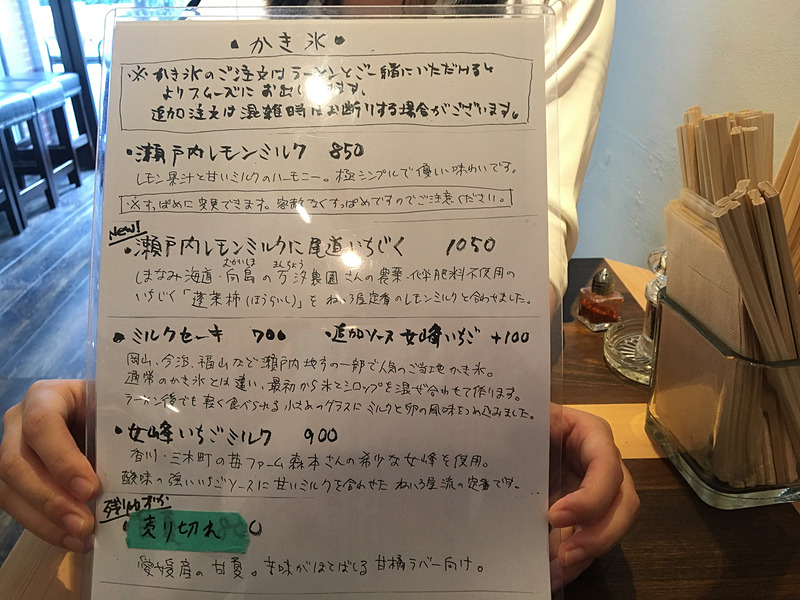 ・かき氷・
※かき氷のご注文はラーメンとご一緒にいただけると
よりスムーズにお出しできます。
追加注文は混雑時はお断りする場合がございます。
・瀬戸内レモンミルク 850
レモン果汁と甘いミルクのハーモニー。極シンプルで優しい味わいです。
※すっぱめに変更できます。容赦なくすっぱめですのでご注意ください。
NEW!
・瀬戸内レモンミルクに尾道いちじく 1050
むかいしま まんちょう
しまなみ海道・向島の万汐農園さんの農薬・化学肥料不使用の
いちじく「蓬莱柿(ほうらいし)」をねいろ屋定番のレモンミルクと合わせました。
・ミルクセーキ 700 ・追加ソース女峰いちご +100
岡山、今治、福山など瀬戸内地方の一部で人気のご当地かき氷。
通常のかき氷とは違い、最初から氷とシロップを混ぜ合わせて作ります。
ラーメン後でも軽く食べられる小さめのグラスにミルクと卵の風味をつめ込みました。
・女峰いちごミルク 900
香川・三木町の苺ファーム森本さんの希少な女峰を使用。
酸味の強いいちごソースに甘いミルクを合わせたねいろ屋流の定番です。
残りわずか
・売り切れ 0
愛媛産の甘夏。苦味がほとばしる甘橘ラバー向け。